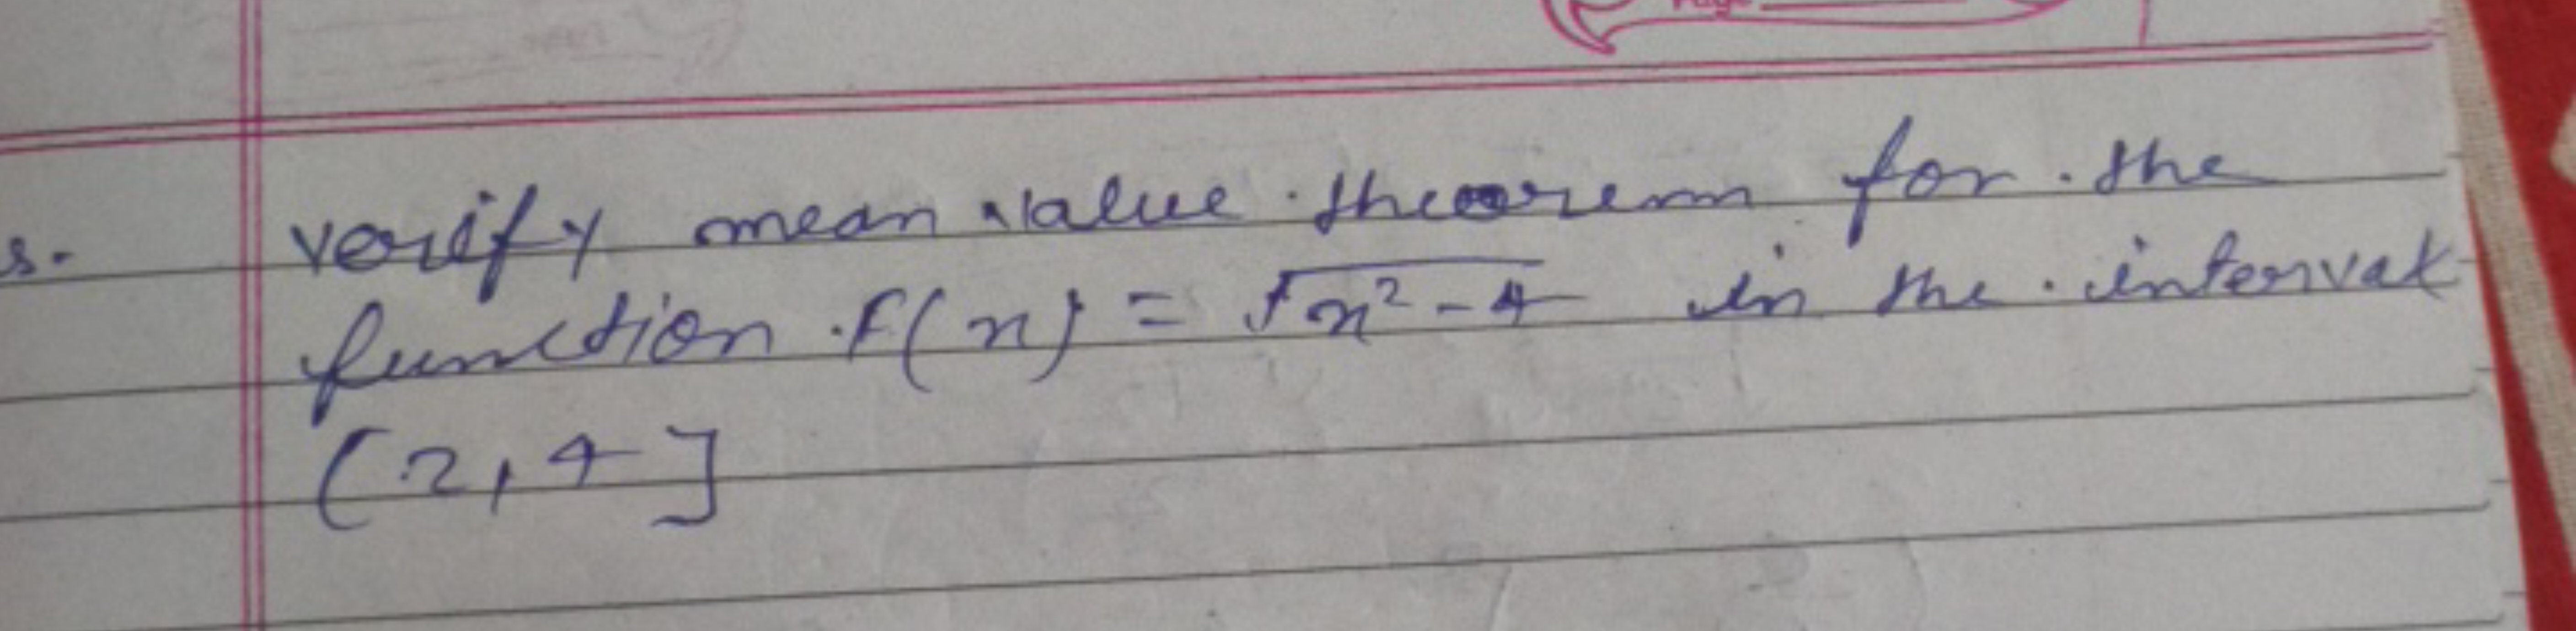 s. verify mean value theorem for the
function f(x) = √x² - 4 in the interval
(2, 4]